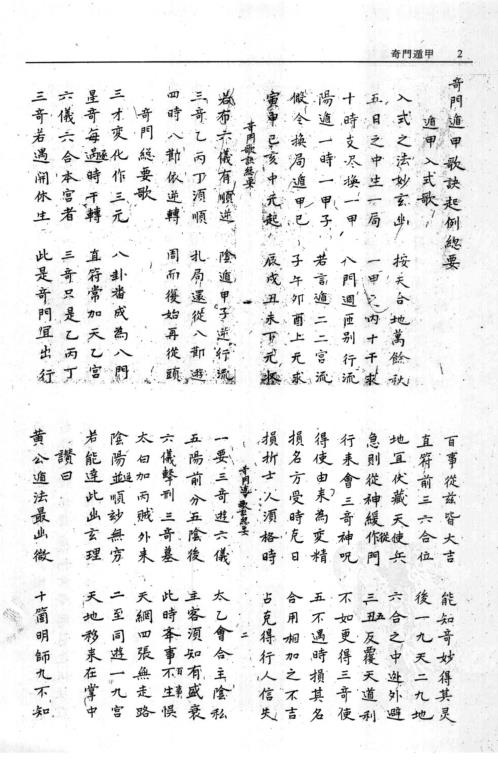 奇門遁甲 2
奇門遁甲歌訣起例總要
遁甲入式歌
入式之法妙玄幽 按天合地萬餘秋
五日之中生一局 一甲之內十干求
十時支尽換一甲 八門週匝别行流
陽遁一時一甲子 若言遁二二宮流
假令換局遁甲己 子午卯酉上元求
寅申己亥中元起 辰戌丑未下元
奇門歌訣總要 一
若布六儀有順逆 陰遁甲子逆行流
三奇乙丙丁須順 扎局還從八節遊
四時八節依逆轉 周而復始再從頭
奇門總要歌
三才変化作三元 八卦畨成為八門
星奇每遇時干轉 直符常加天乙宮
六儀六合本宮者 三奇只是乙丙丁
三奇若遇開休生 此是奇門宜出行
百事從兹皆大吉 能知奇妙得其灵
直符前三六合位 後一九天二九地
地宜伏藏天使兵 六合之中迯外避
急則從神緩從門 三五反覆天道利
行来會三奇神呪 不如更得三奇使
得使由来為变精 五不遇時損其名
損名方受時尅日 合用相加之不吉
損折士人須格時 占克得行人信失
奇門遁 歌訣總要 二
一要三奇遊六儀 太乙會合主陰私
五陽前分五陰後 主客須知有盛衰
六儀擊刑三奇墓 此時奉事不生悞
太白加丙賊外来 天網四張無走路
陰陽並順妙無穷 二至同遊一九宮
若能達此幽玄理 天地移来在掌中
讚曰
黄公遁法最幽微 十箇明師九不知